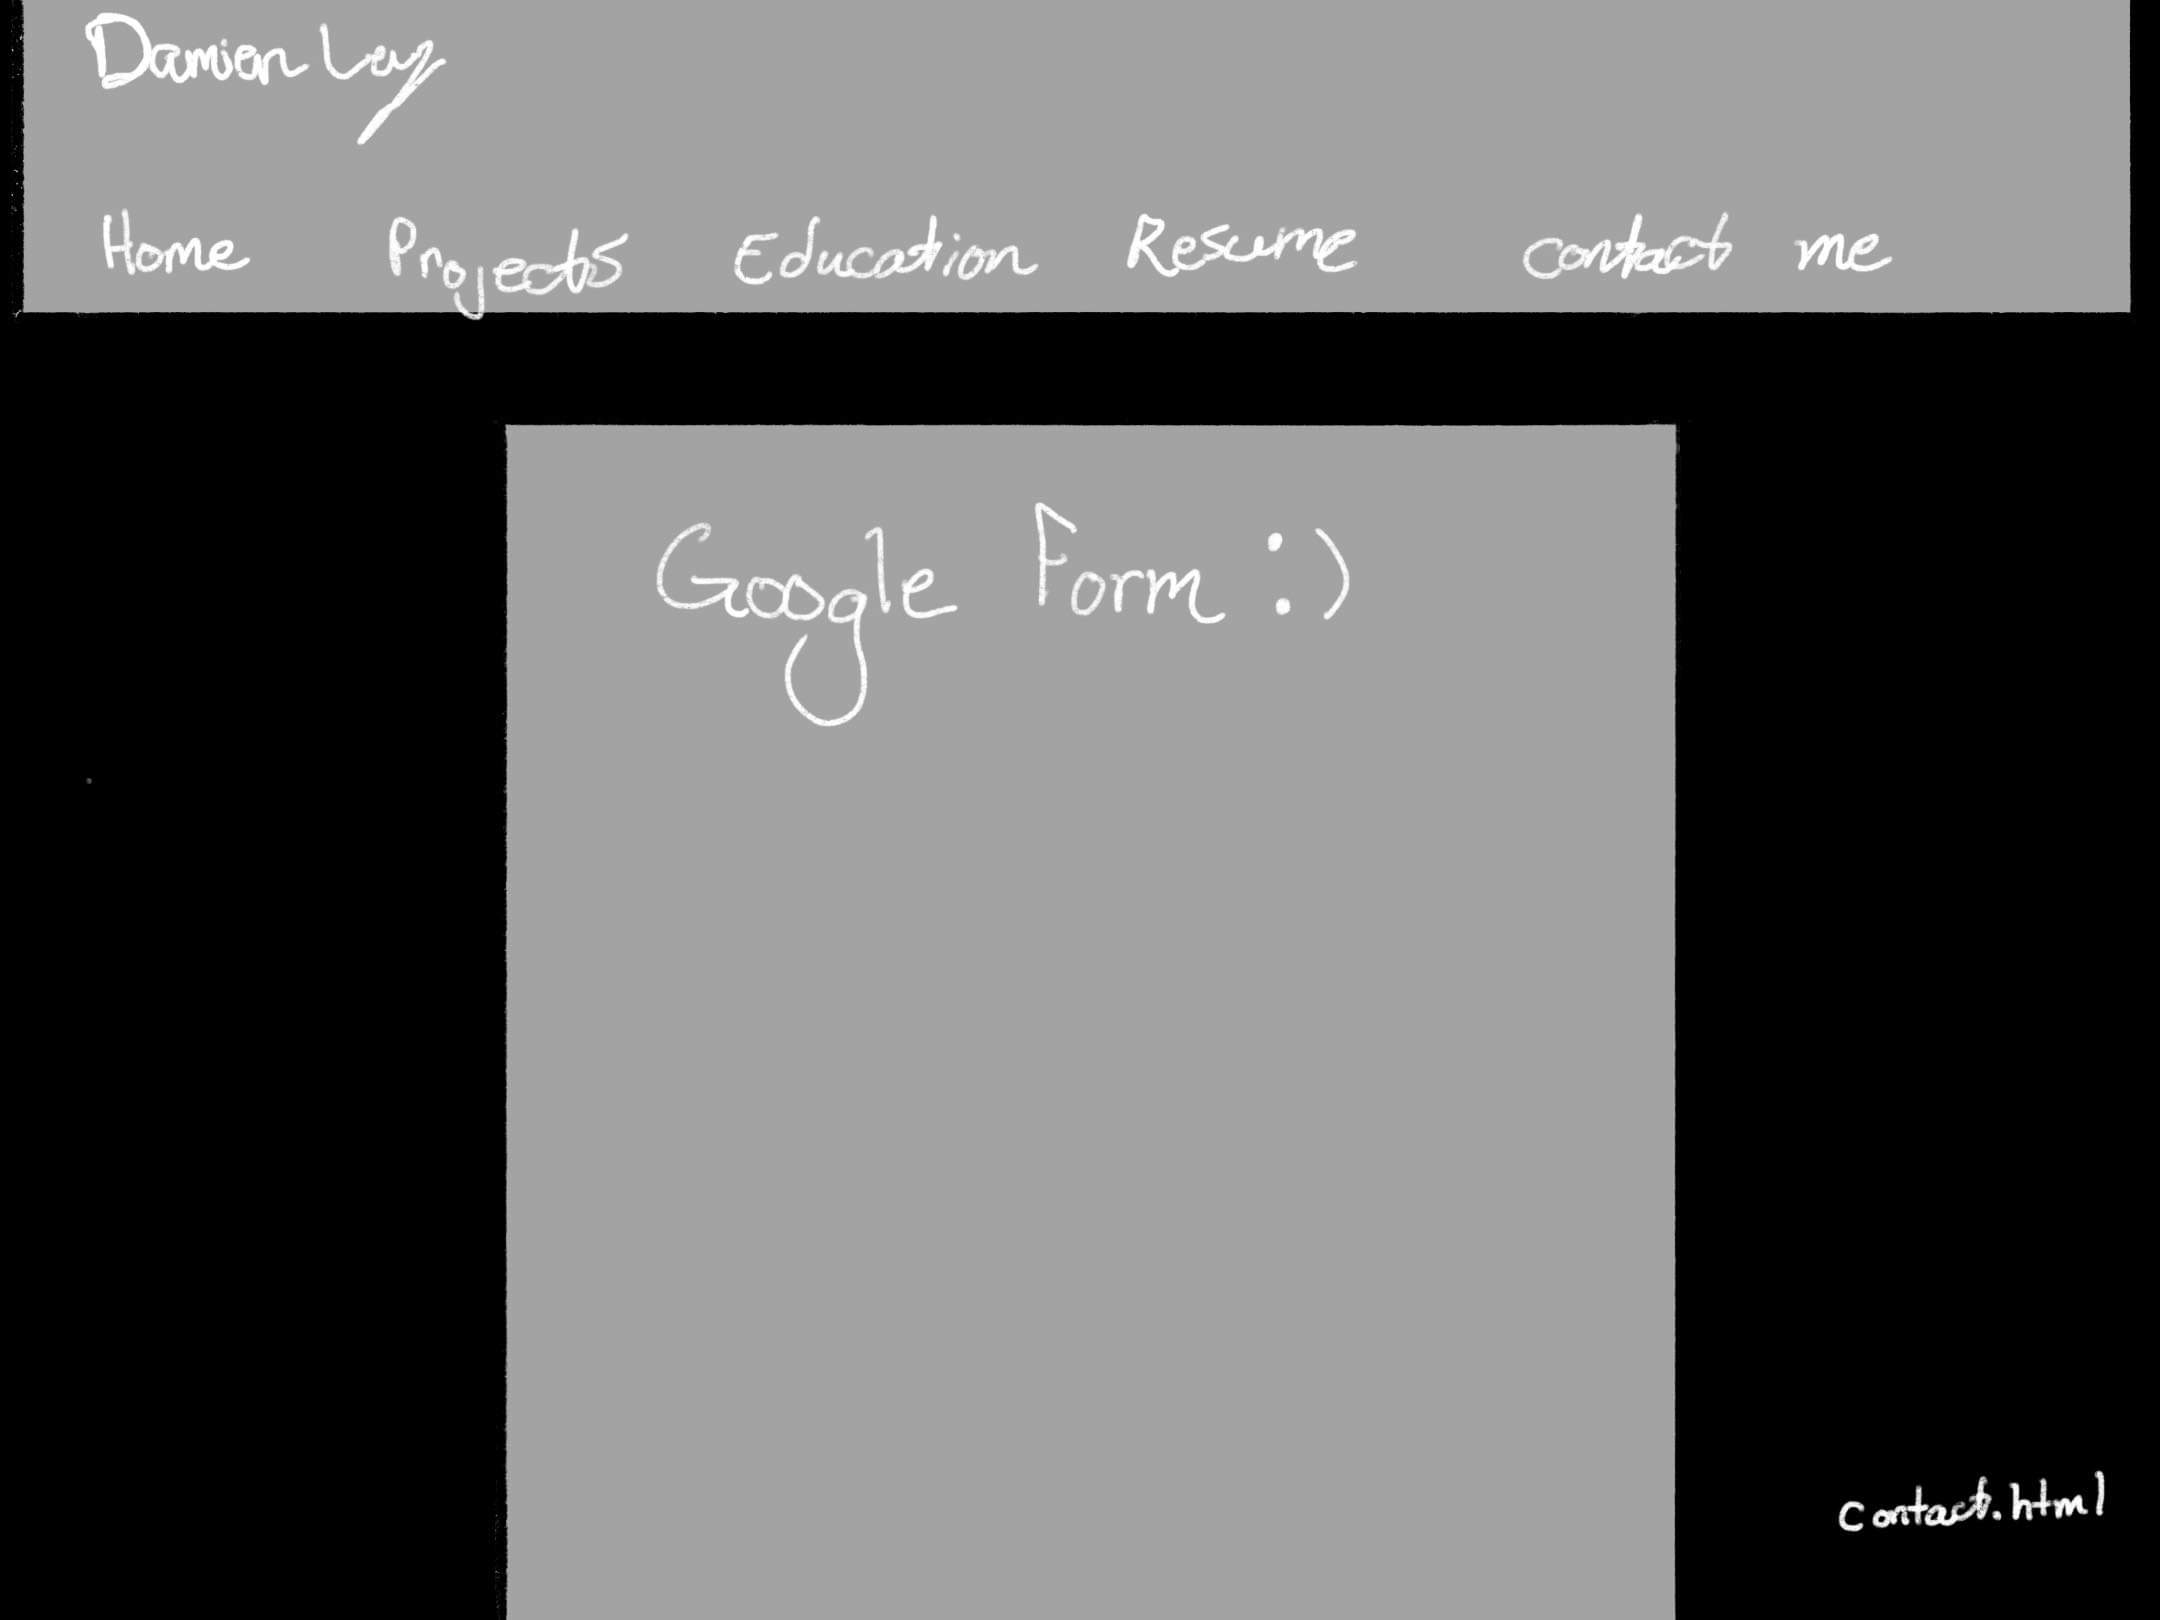 Damien Ley
Home Projects Education Resume contact me
Google Form :)
contact.html